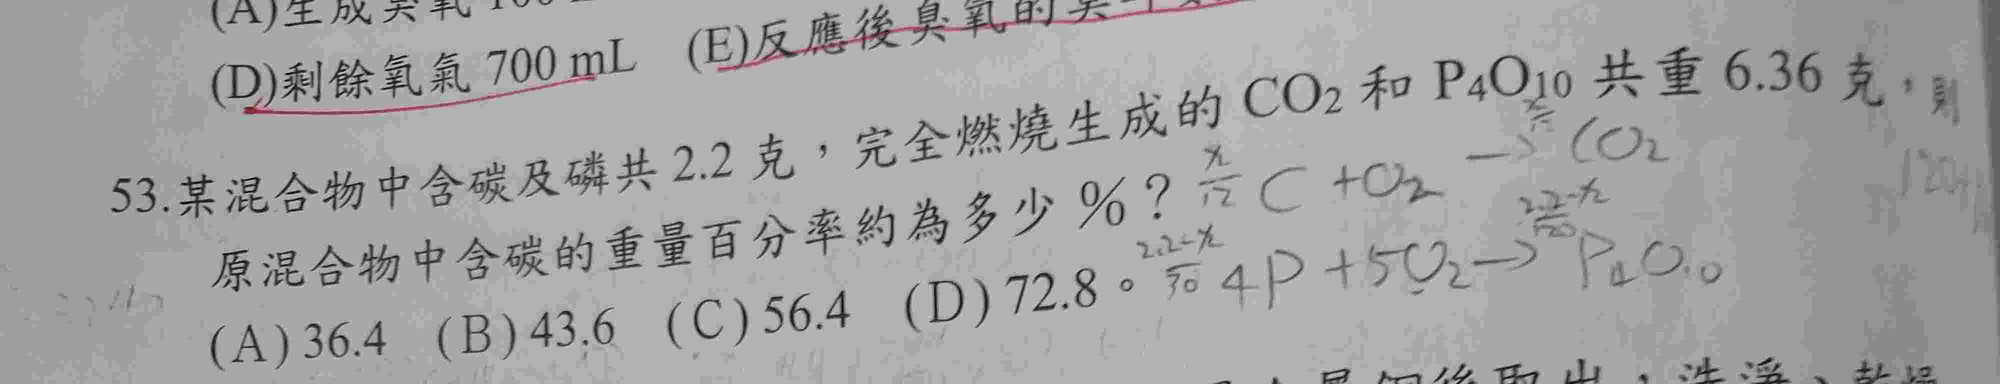 (A)生成臭氧
(D)剩餘氧氣 700 mL (E)反應後臭氧的
53.某混合物中含碳及磷共 2.2 克，完全燃燒生成的 CO₂ 和 P₄O₁₀ 共重 6.36 克，則
原混合物中含碳的重量百分率約為多少 %？
x/12 C + O₂ → x/12 CO₂
(A) 36.4 (B) 43.6 (C) 56.4 (D) 72.8。
2.2-x/30 4P + 5O₂ → 2.2-x/120 P₄O₁₀
後取出，洗淨、乾燥